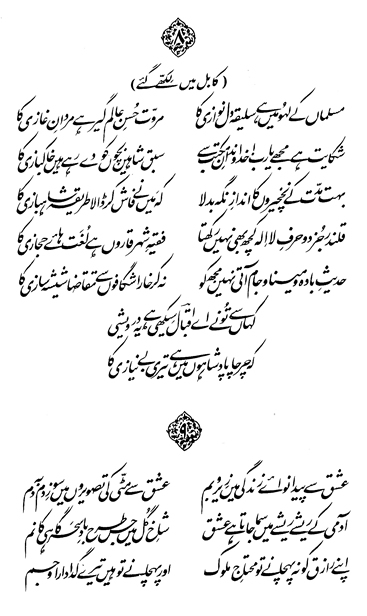 ۸
(کابل میں لکھے گئے)
مسلماں کے لہو میں ہے سلیقہ دل نوازی کا مروّت حسنِ عالم گیر ہے مردانِ غازی کا
شکایت ہے مجھے یا رب! خداوندانِ مکتب سے سبق شاہیں بچوں کو دے رہے ہیں خاکبازی کا
بہت مدّت کے نخچیروں کا اندازِ نگہ بدلا کہ میں نے فاش کر ڈالا طریقہ شاہبازی کا
قلندر جُز دو حرفِ لااِلہ کچھ بھی نہیں رکھتا فقیہِ شہر قاروں ہے لُغَت ہائے حجازی کا
حدیثِ بادہ و مینا و جام آتی نہیں مجھ کو نہ کر خارا شگافوں سے تقاضا شیشہ سازی کا
کہاں سے تُو نے اے اقبالؔ سیکھی ہے یہ درویشی
کہ چرچا پادشاہوں میں ہے تیری بے نیازی کا
۹
عشق سے پیدا نوائے زندگی میں زیر و بم عشق سے مٹّی کی تصویروں میں سوزِ دم بہ دم
آدمی کے ریشے ریشے میں سما جاتا ہے عشق شاخِ گُل میں جس طرح بادِ سحر گاہی کا نم
اپنے رازق کو نہ پہچانے تو محتاجِ ملوک اور پہچانے تو ہیں تیرے گدا دارا و جم